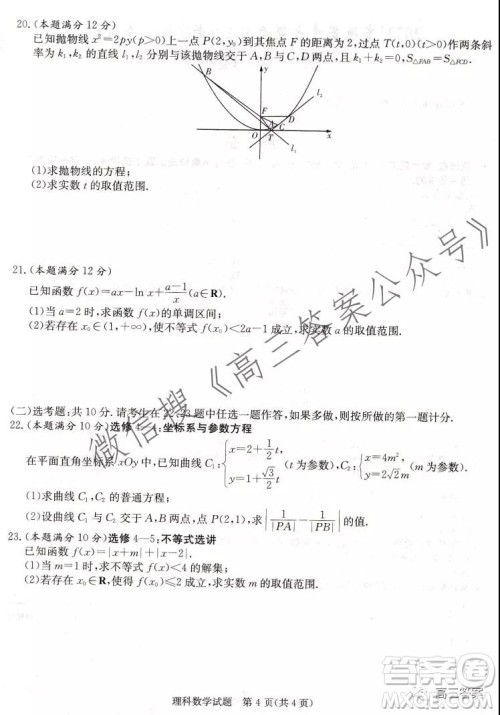 20.(本题满分12分)
已知抛物线x²=2py(p>0)上一点P(2,y₀)到其焦点F的距离为2,过点T(t,0)(t>0)作两条斜
率为k₁,k₂的直线l₁,l₂分别与该抛物线交于A,B与C,D两点,且k₁+k₂=0,S△FAB=S△FCD.
y
B
l₂
F
D
A
C
O
T
x
l₁
(1)求抛物线的方程;
(2)求实数t的取值范围.
21.(本题满分12分)
已知函数f(x)=ax-ln x+(a-1)/x(a∈R).
(1)当a=2时,求函数f(x)的单调区间;
(2)若存在x₀∈(1,+∞),使不等式f(x₀)<2a-1成立,求实数a的取值范围.
(二)选考题:共10分.请考生在22、23题中任选一题作答,如果多做,则按所做的第一题计分.
22.(本题满分10分)选修4-4:坐标系与参数方程
在平面直角坐标系xOy中,已知曲线C₁:{x=2+1/2 t, y=1+√3/2 t (t为参数),C₂:{x=4m², y=2√2m (m为参数).
(1)求曲线C₁,C₂的普通方程;
(2)设曲线C₁与C₂交于A,B两点,点P(2,1),求|1/|PA|-1/|PB||的值.
23.(本题满分10分)选修4-5:不等式选讲
已知函数f(x)=|x+m|+|x-2|.
(1)当m=1时,求不等式f(x)<4的解集;
(2)若存在x₀∈R,使得f(x₀)≤2成立,求实数m的取值范围.
理科数学试题 第4页(共4页)
微信搜《高三答案公众号》
高三答案
答案圈
MXQE.COM